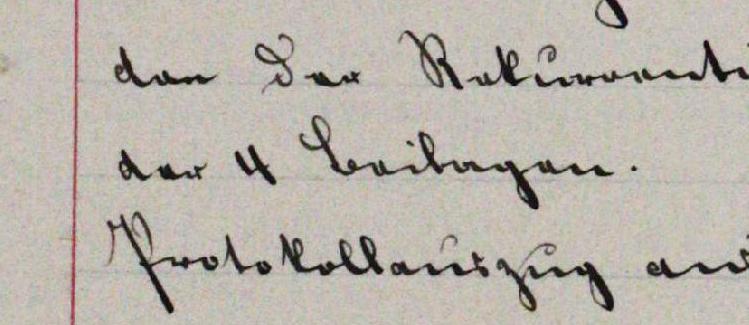 den der Rekurrenti
der 4 Beilagen.
Protokollauszug an